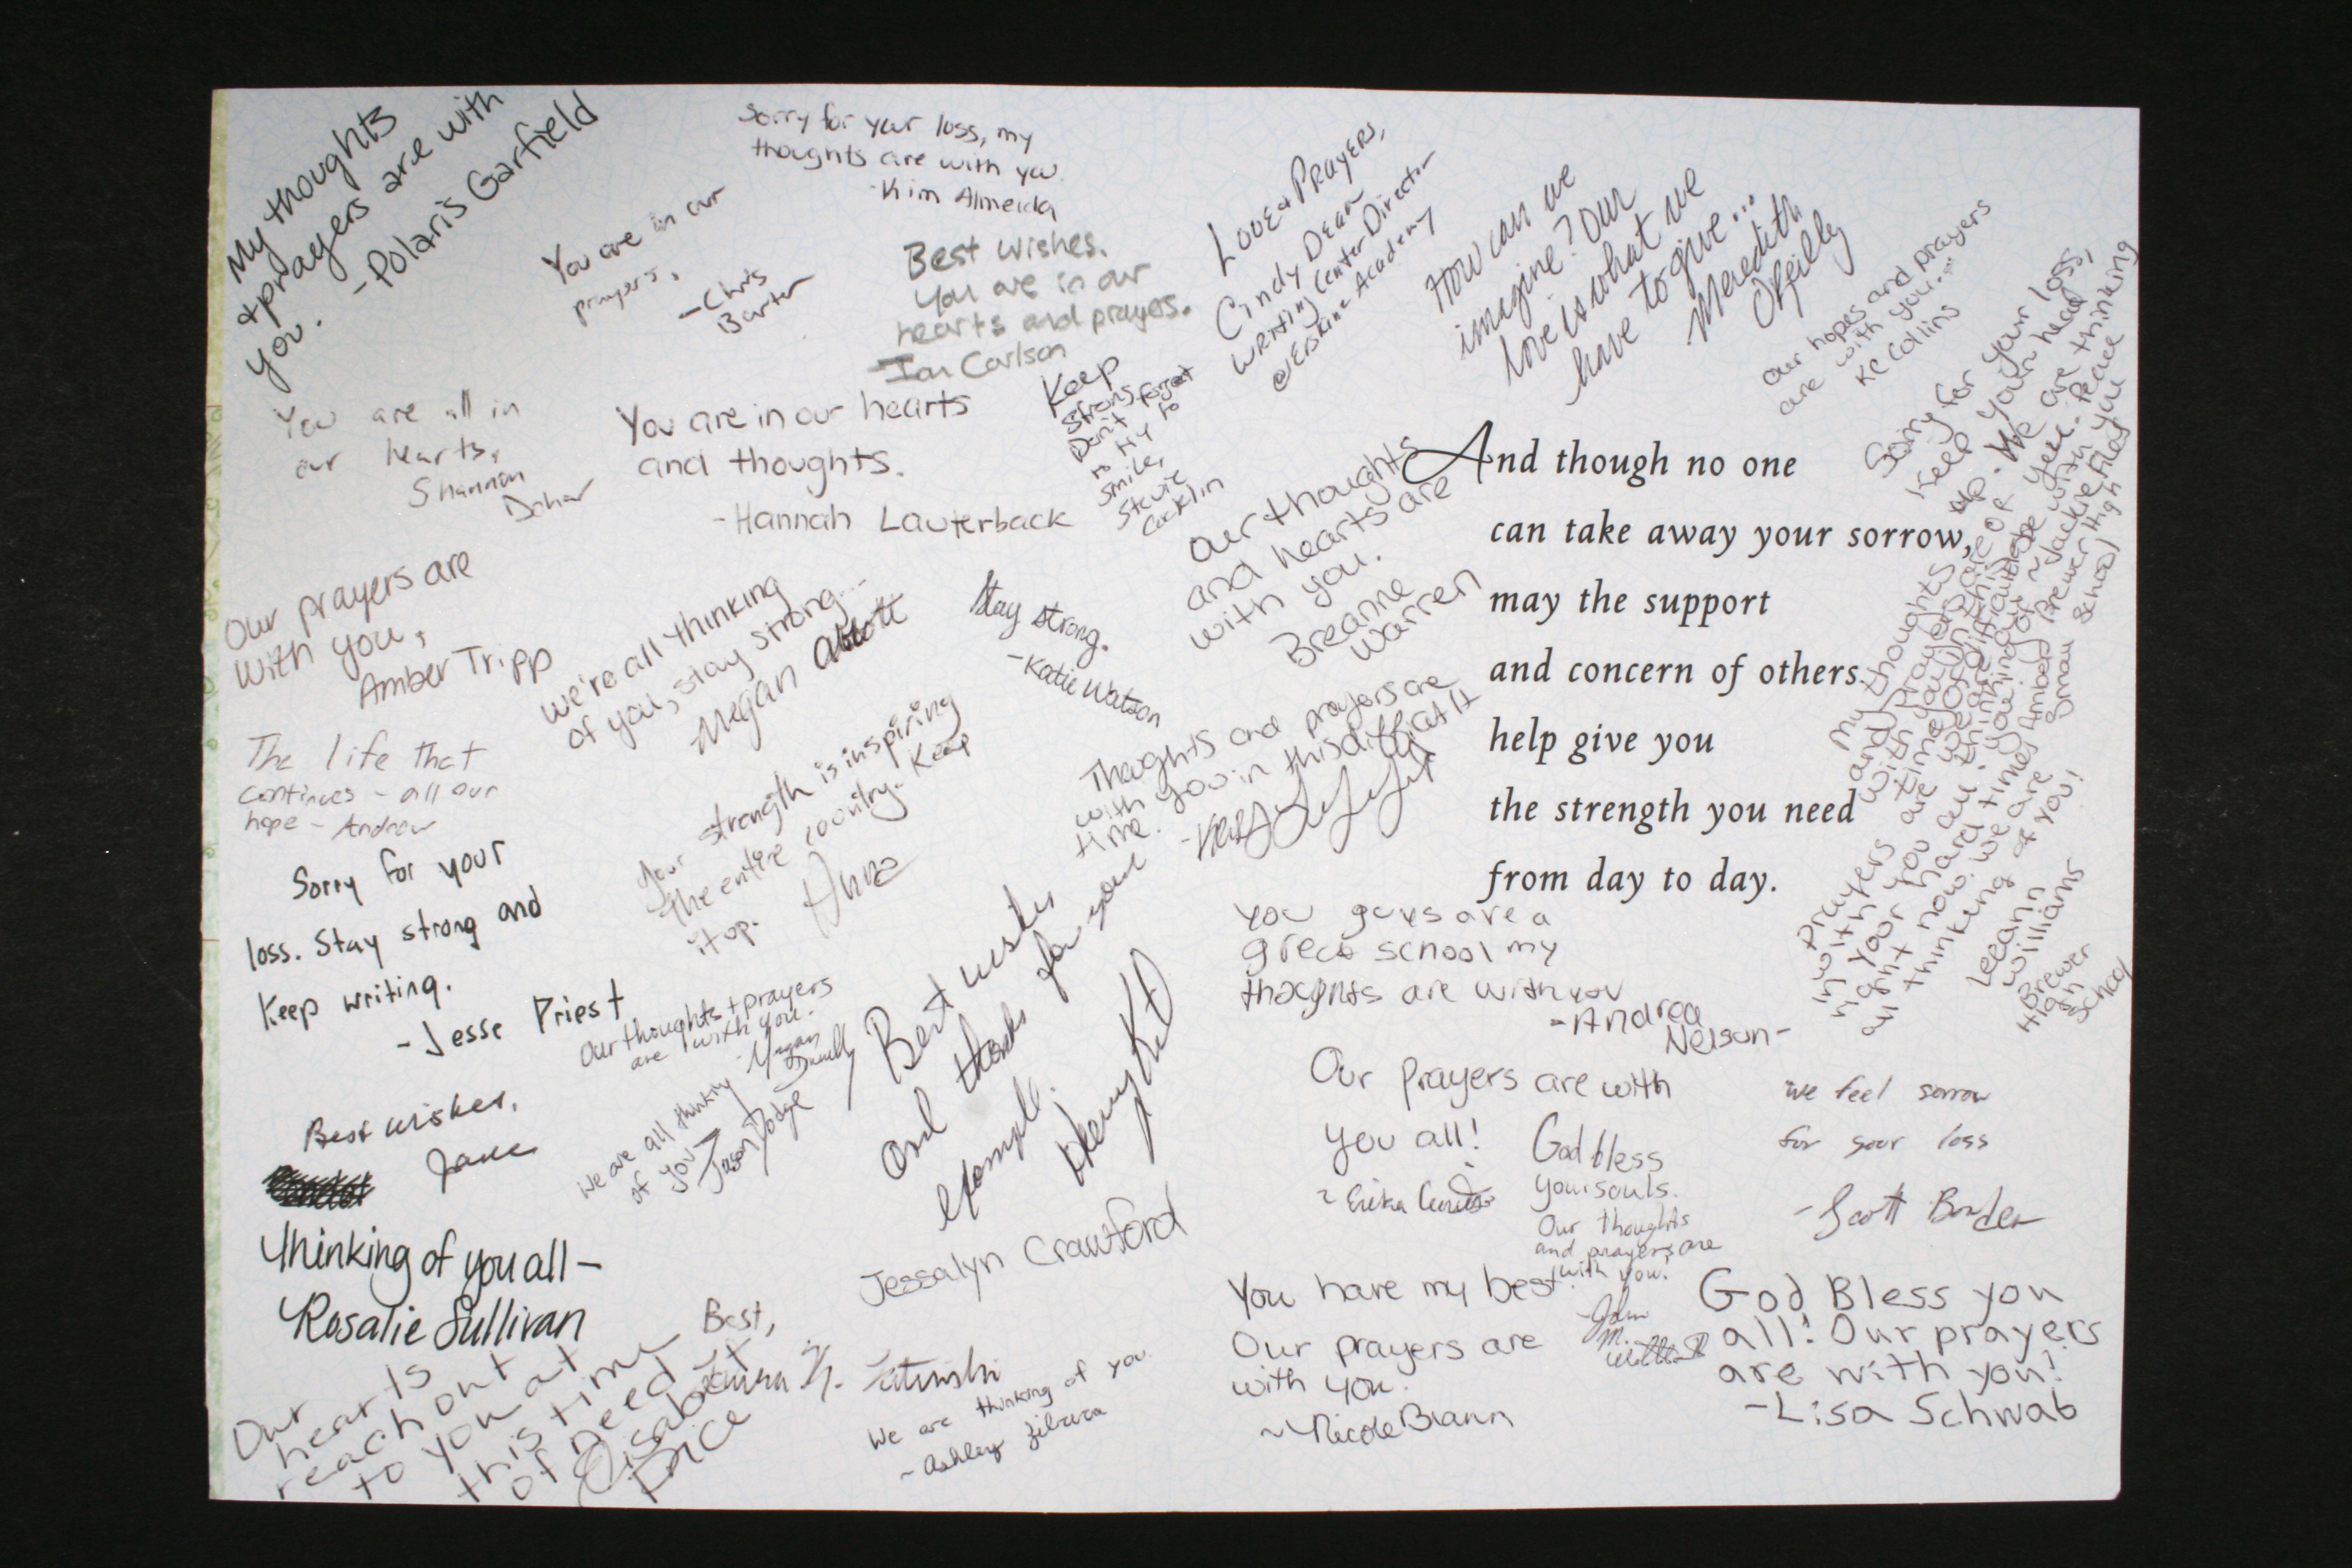 My thoughts
+ prayers are with
you.
-Polaris Garfield
Sorry for your loss, my
thoughts are with you
-Kim Almeida
You are in our
prayers,
-Chris
Barter
Best wishes.
You are in our
hearts and prayers.
-Ian Carlson
Love & Prayers,
Cindy Dean
Writing Center Director
@ Erskine Academy
How can we
imagine? Our
love is what we
have to give...
Meredith
Our hopes and prayers
are with you...
KC Collins
You are all in
our hearts,
Shannon
You are in our hearts
and thoughts.
-Hannah Lauterback
Keep
strong.
Don't forget
to try to
smile,
Stevie
Our thoughts
and hearts are
with you.
Breanne
Warren
And though no one
can take away your sorrow,
may the support
and concern of others
help give you
the strength you need
from day to day.
Sorry for your loss,
Keep your head
up. We are thinking
My thoughts
and prayers
with you in
Our prayers are
with you,
Amber Tripp
We're all thinking
of you, stay strong...
Megan Abbott
Stay strong.
-Katie Watson
Thoughts and prayers are
with you in this difficult
time.
The life that
continues - all our
hope - Andrew
Your strength is inspiring
the entire country. Keep
it up.
Anna
Sorry for your
loss. Stay strong and
Keep writing.
-Jesse Priest
Our thoughts + prayers
are with you.
-Megan
We are all thinking
of you
Jason Dodge
Best wishes
and thanks for your
example.
You guys are a
great school my
thoghts are with you
-Andrea
Nelson-
Prayers
in with you all
in your
right now. We are
all thinking of you!
Leeann
Williams
Brewer
High
School
Best wishes,
Jane
Our prayers are with
you all!
~Erika
God bless
your souls.
Our thoughts
and prayers are
with you!
-John
M.
We feel sorrow
for your loss
-Scott
Thinking of you all-
Rosalie Sullivan
Jessalyn Crawford
Our
hearts
reach out
to you at
this time
of need
Price
Best,
We are thinking of you.
~Ashley
You have my best.
Our prayers are
with you.
~Nicole Brann
God Bless you
all! Our prayers
are with you!
-Lisa Schwab